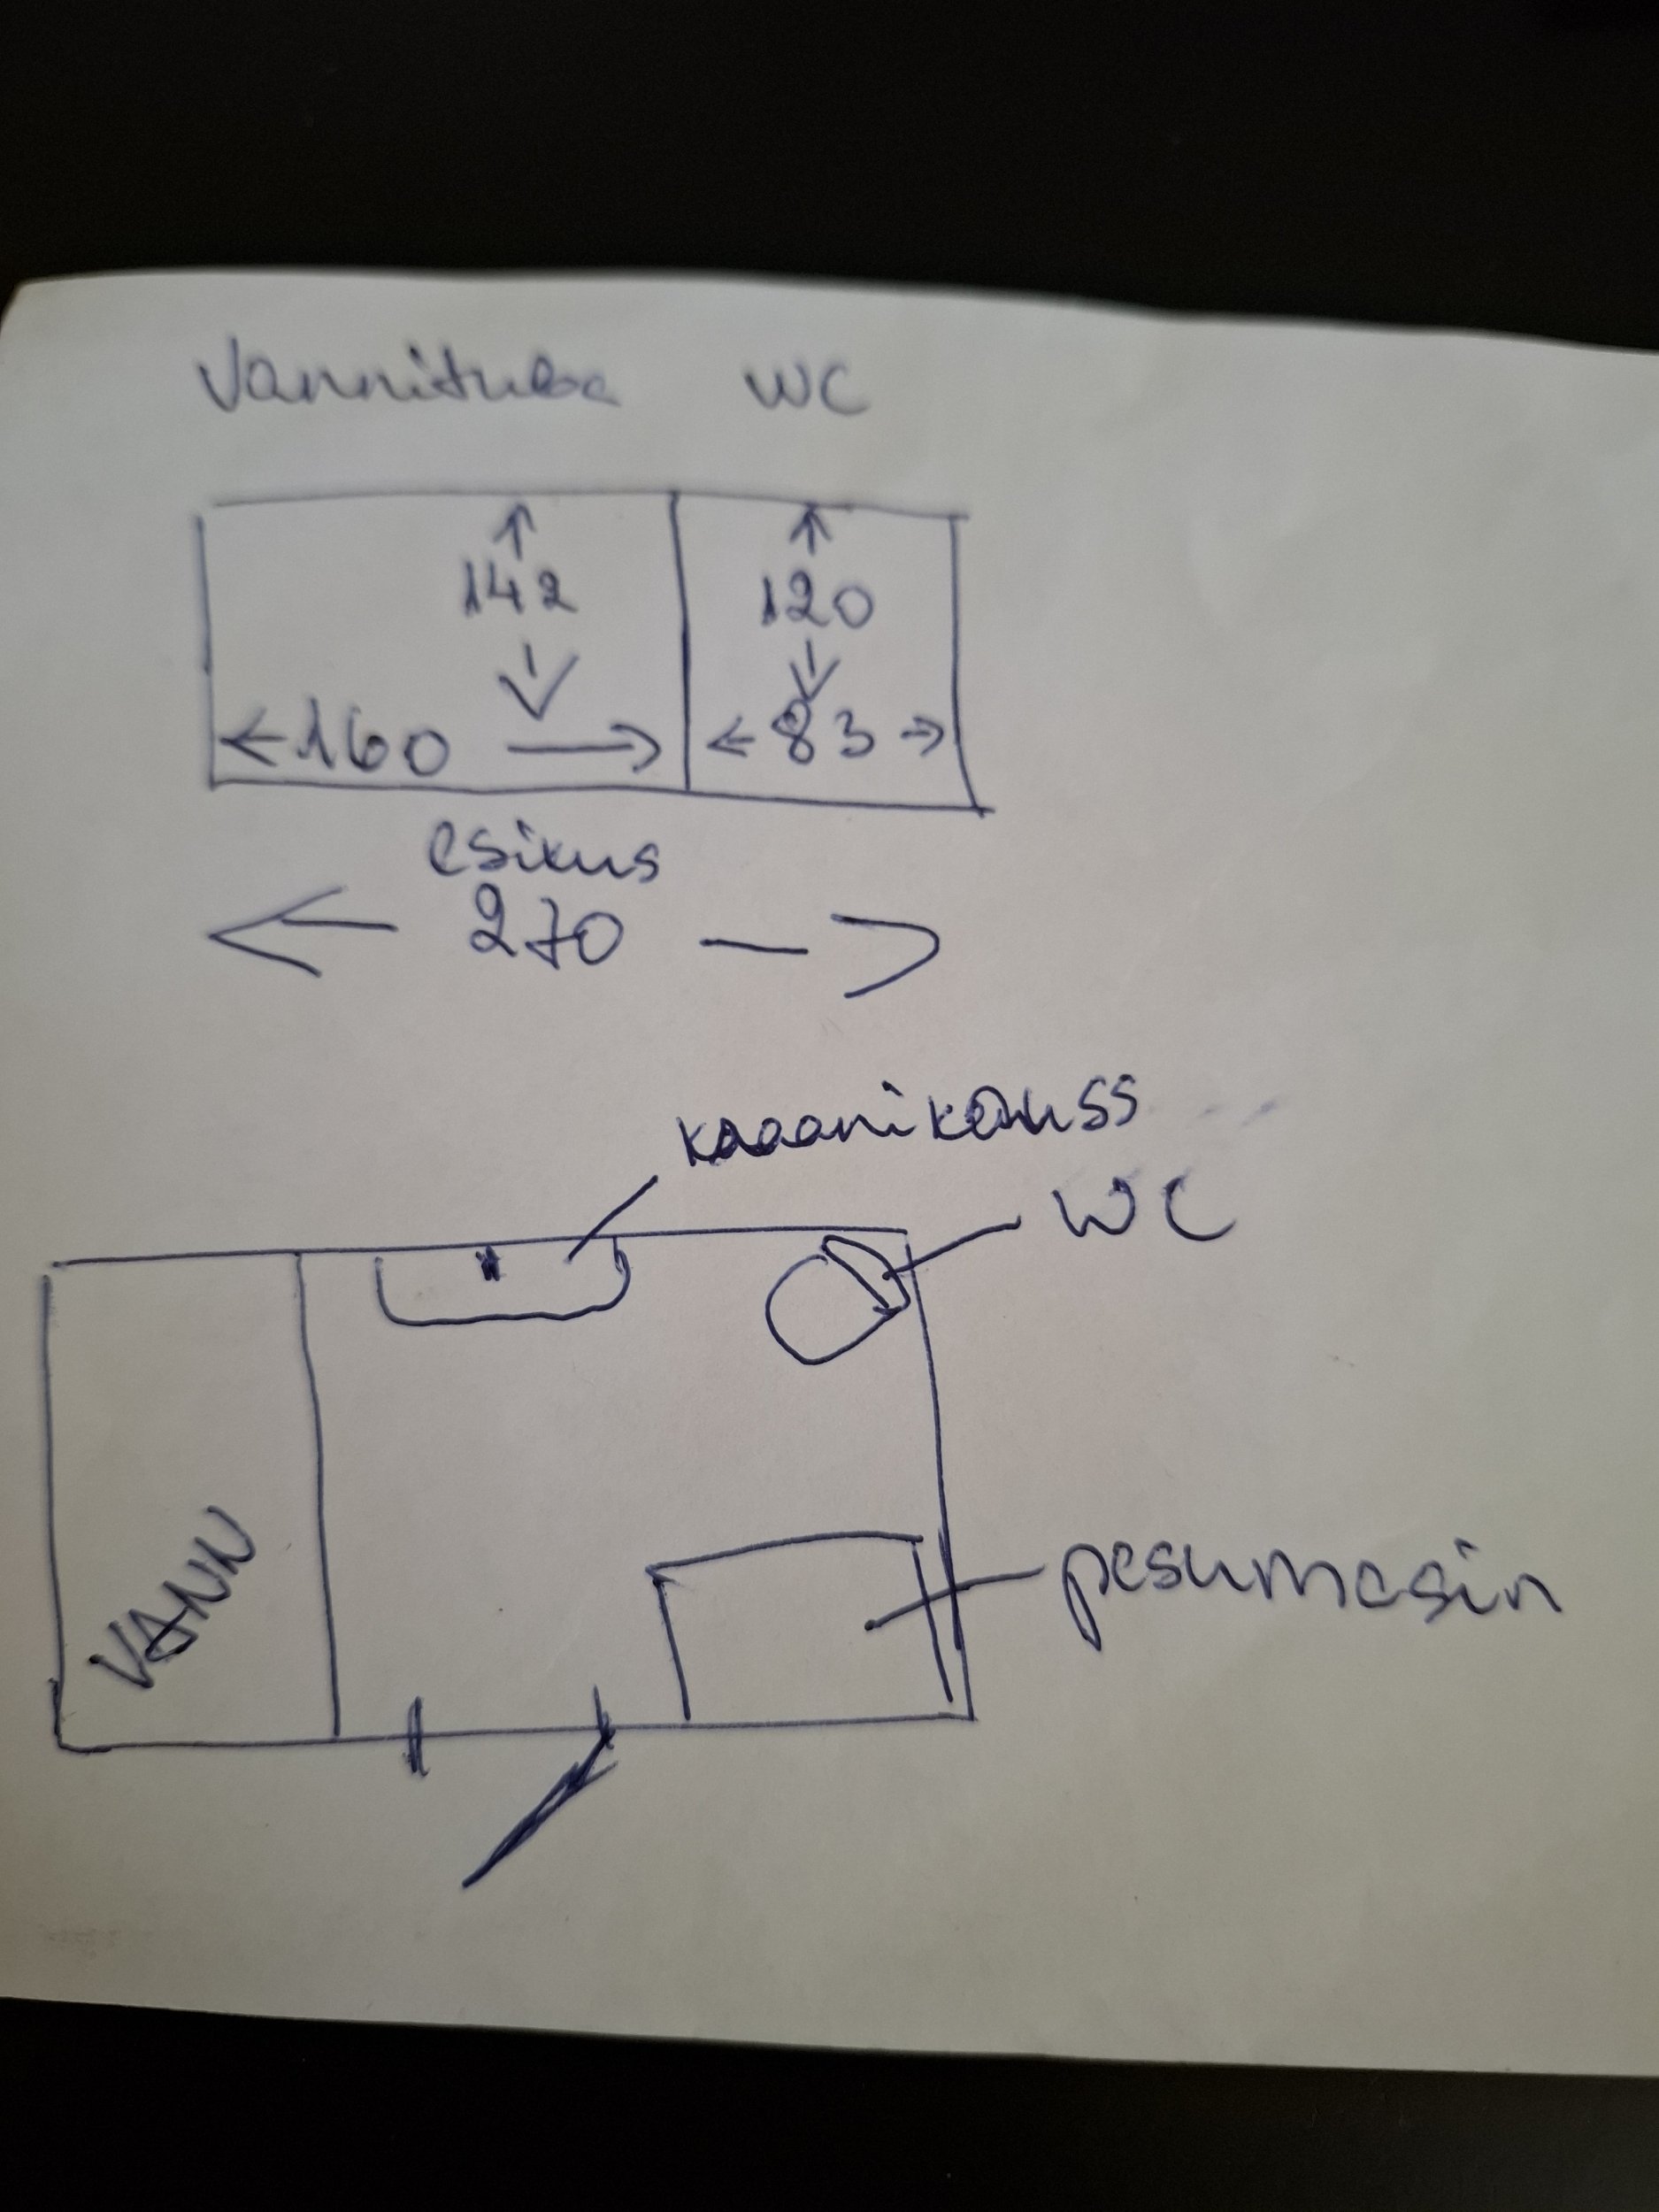 Vannituba WC
142 120
160 83
esikus
270
kraanikauss
WC
VANN
pesumasin